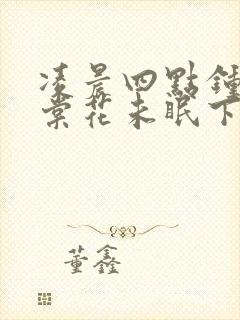 凌晨四點鐘
棠花未眠下
董鑫